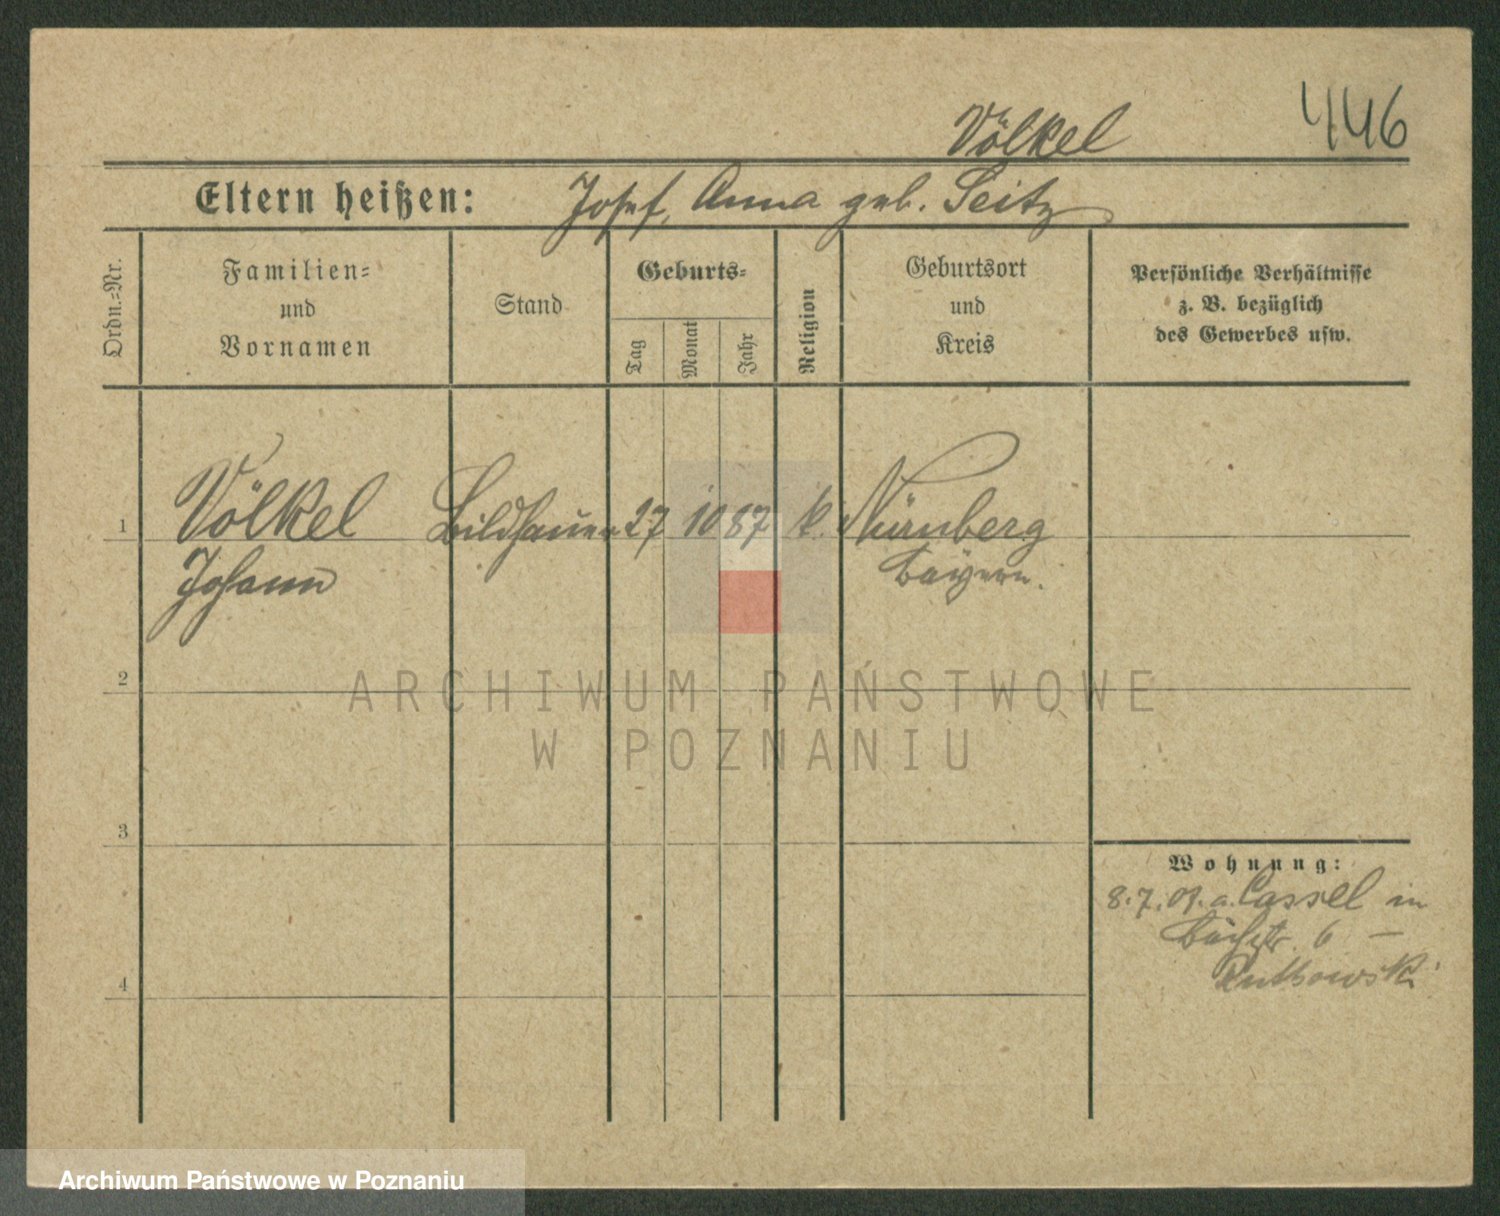 446
Völkel
Eltern heißen: Josef, Anna geb. Seitz
Ordn.-Nr.
Familien-
und
Vornamen
Stand
Geburts-
Tag
Monat
Jahr
Religion
Geburtsort
und
Kreis
Persönliche Verhältnisse
z. B. bezüglich
des Gewerbes usw.
1 Völkel Bildhauer 27 10 87 k. Nürnberg
Johann Bayern.
2
ARCHIWUM PAŃSTWOWE
W POZNANIU
3
Wohnung:
8.7.09. a. Cassel in
6 –
4
Archiwum Państwowe w Poznaniu